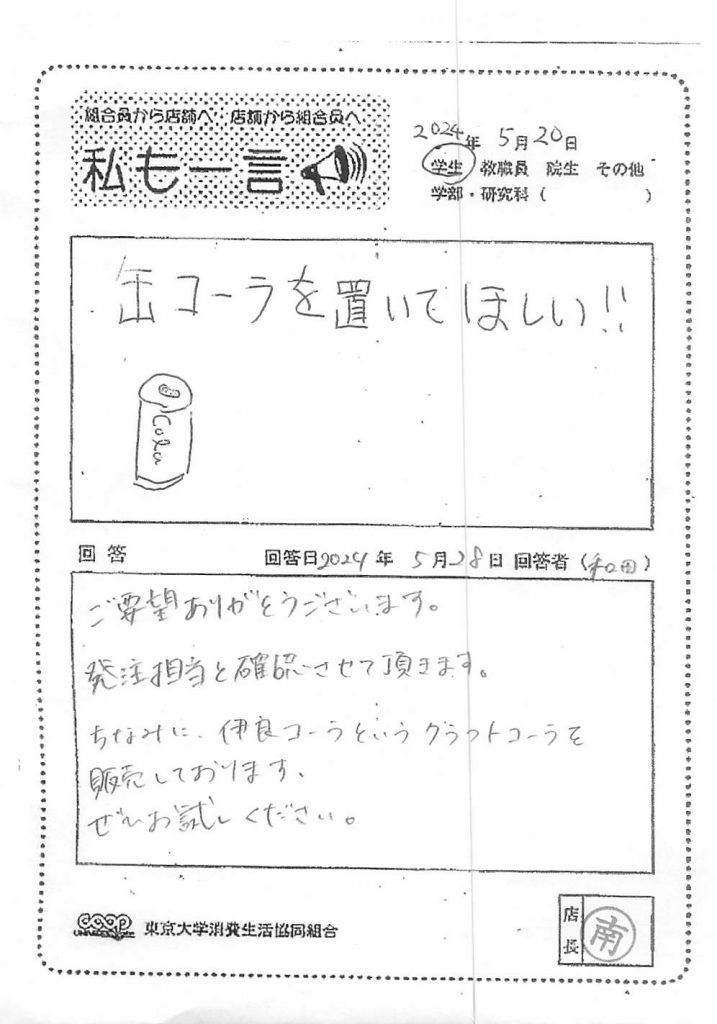 組合員から店舗へ・店舗から組合員へ
私も一言
2024年 5月20日
学生 教職員 院生 その他
学部・研究科 ( )
缶コーラを置いてほしい!!
Cola
回答 回答日2024年 5月28日 回答者 (和田)
ご要望ありがとうございます。
発注担当と確認させて頂きます。
ちなみに、伊良コーラというクラフトコーラを
販売しております、
ぜひお試しください。
coop 東京大学消費生活協同組合
店長 南